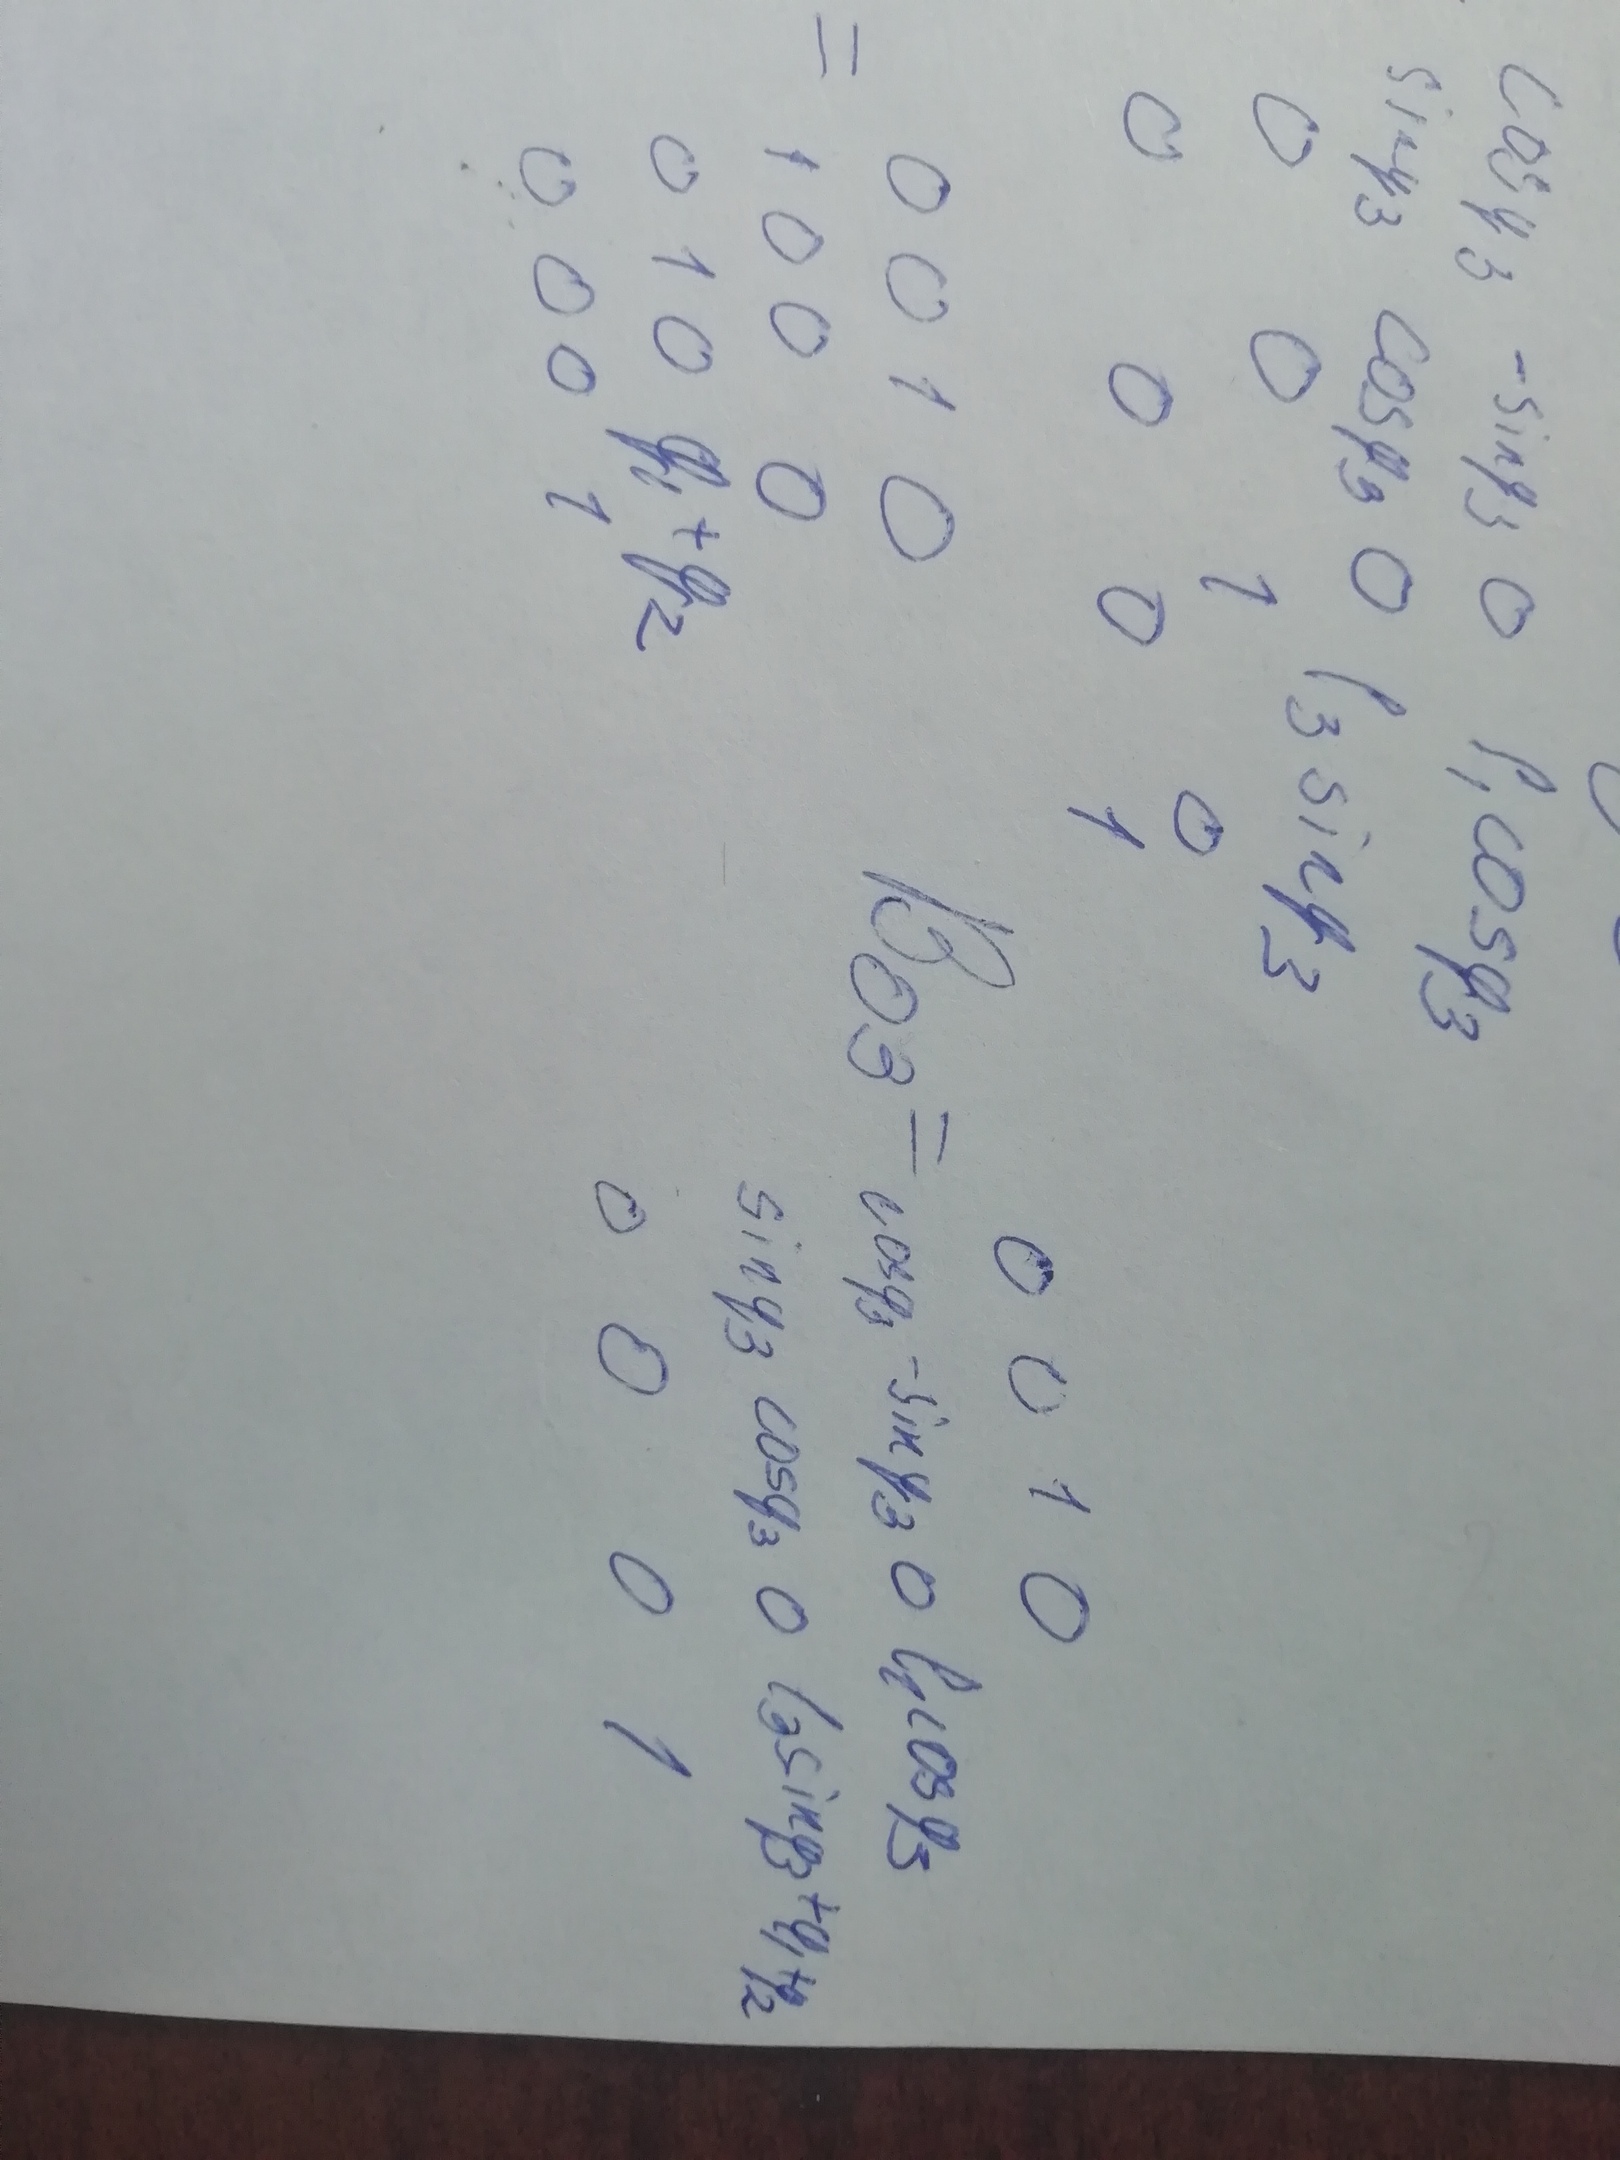 cosq₃ -sinq₃ 0 l₁cosq₃
sinq₃ cosq₃ 0 l₃sinq₃
0 0 1 0
0 0 0 1
= 0 0 1 0
1 0 0 0
0 1 0 q₁+q₂
0 0 0 1
B₀₃ = 0 0 1 0
cosq₃ -sinq₃ 0 l₁cosq₃
sinq₃ cosq₃ 0 l₃sinq₃+q₁+q₂
0 0 0 1